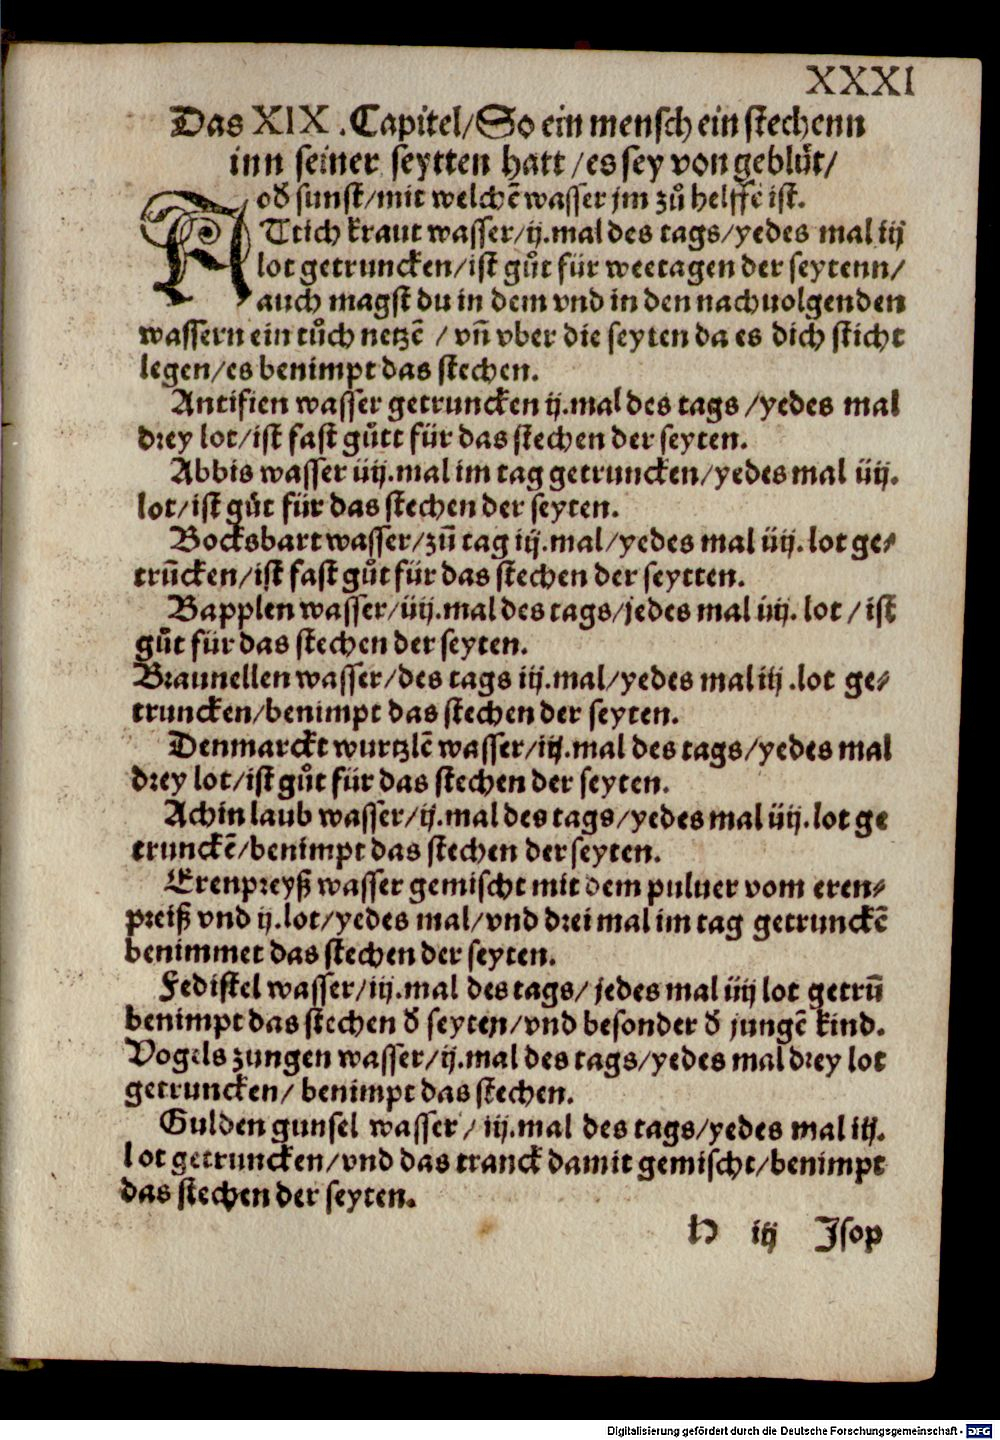 XXXI
Das XIX. Capitel/ So ein mensch ein stechenn
inn seiner seytten hatt/ es sey von geblůt/
oď sunst/ mit welchē wasser jm zů helffē ist.
ATtich kraut wasser/ ij.mal des tags/ yedes mal iij
lot getruncken/ ist gůt für weetagen der seytenn/
auch magst du in dem vnd in den nachuolgenden
wassern ein tůch netzē / vñ vber die seyten da es dich sticht
legen/ es benimpt das stechen.
Antifien wasser getruncken ij.mal des tags/ yedes mal
drey lot/ ist fast gůtt für das stechen der seyten.
Abbis wasser iiij.mal im tag getruncken/ yedes mal iiij.
lot/ ist gůt für das stechen der seyten.
Bocksbart wasser/ zū tag iij.mal/ yedes mal iiij. lot ge⸗
trūcken/ ist fast gůt für das stechen der seytten.
Bapplen wasser/ iiij.mal des tags/ jedes mal iiij. lot / ist
gůt für das stechen der seyten.
Braunellen wasser/ des tags iij.mal/ yedes mal iij .lot ge⸗
truncken/ benimpt das stechen der seyten.
Denmarckt wurtzlē wasser/ iij.mal des tags/ yedes mal
drey lot/ ist gůt für das stechen der seyten.
Achin laub wasser/ ij.mal des tags/ yedes mal iiij. lot ge
trunckē/ benimpt das stechen der seyten.
Erenpreyß wasser gemischt mit dem puluer vom eren⸗
preiß vnd ij.lot/ yedes mal/ vnd drei mal im tag getrunckē
benimmet das stechen der seyten.
Fedistel wasser/ iij.mal des tags/ jedes mal iiij lot getrū
benimpt das stechen ď seyten/ vnd besonder ď jungē kind.
Vogels zungen wasser/ ij.mal des tags/ yedes mal drey lot
getruncken/ benimpt das stechen.
Gulden gunsel wasser/ iij.mal des tags/ yedes mal iij.
lot getruncken/ vnd das tranck damit gemischt/ benimpt
das stechen der seyten.
H iij Isop
Digitalisierung gefördert durch die Deutsche Forschungsgemeinschaft - DFG